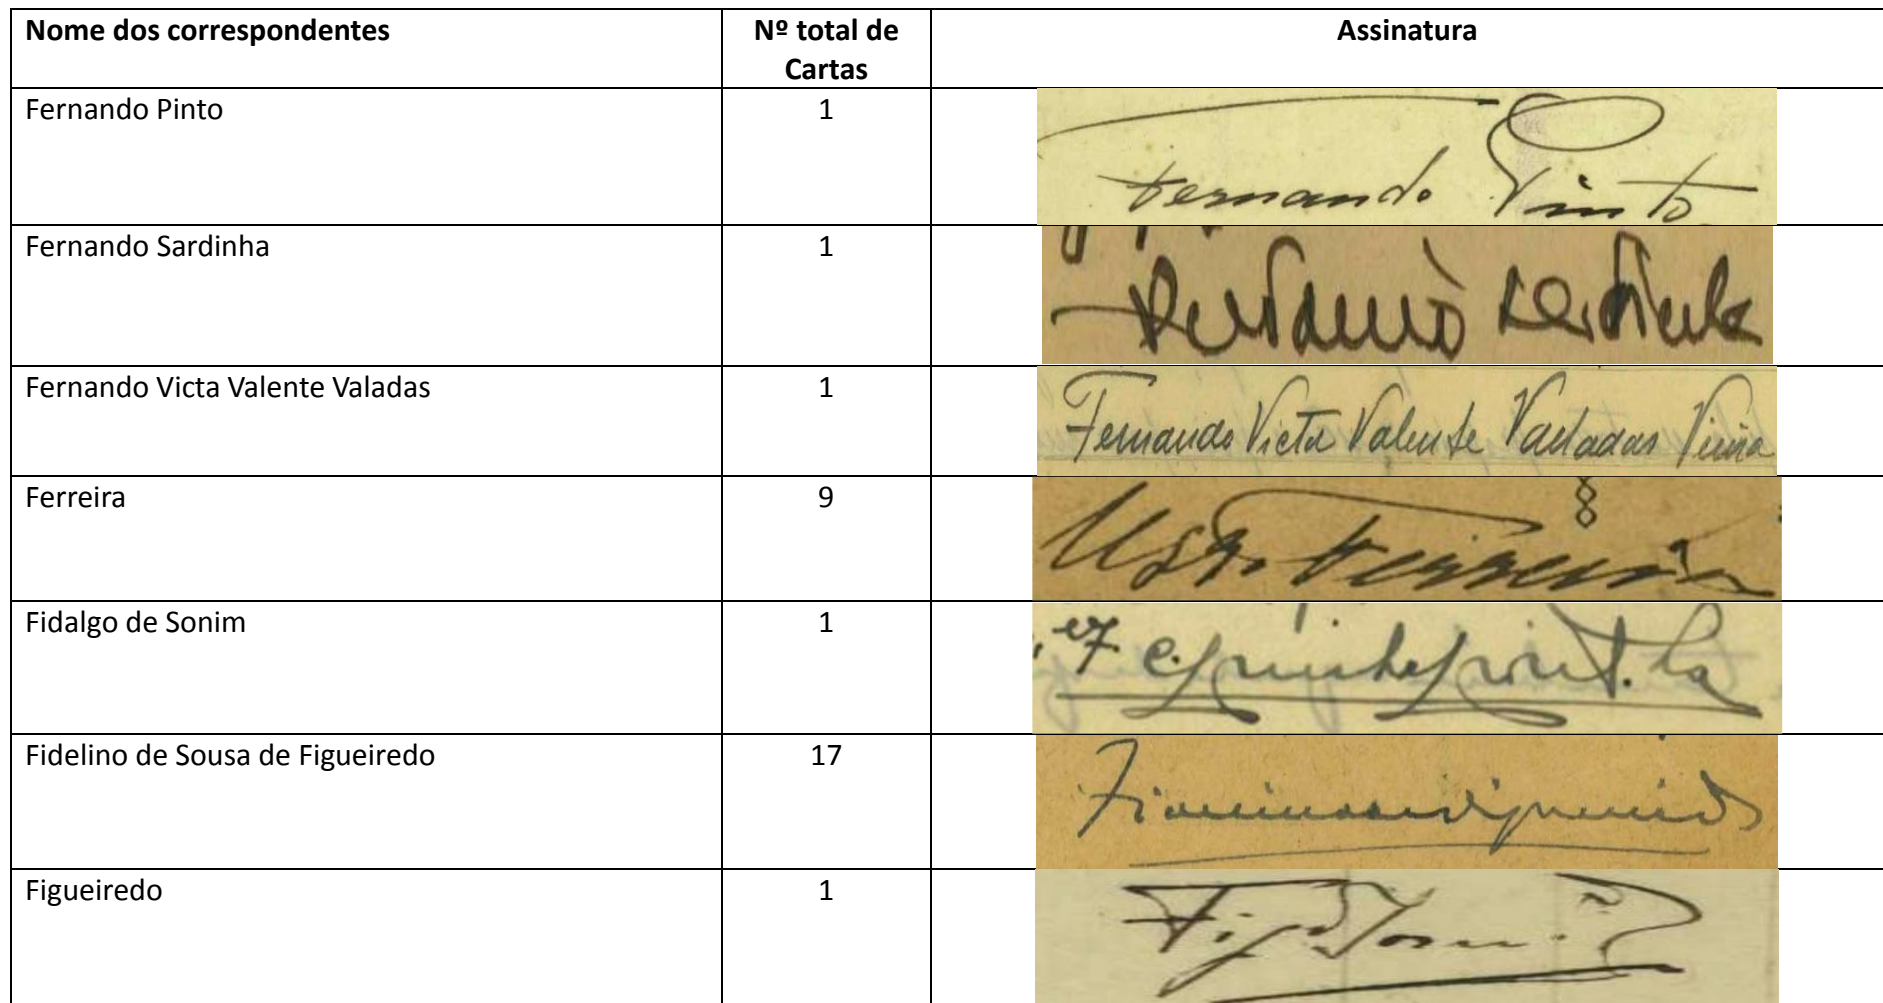 Nome dos correspondentes
Nº total de
Cartas
Assinatura
Fernando Pinto
1
Fernando Pinto
Fernando Sardinha
1
Fernando Sardinha
Fernando Victa Valente Valadas
1
Fernando Victa Valente Valladas
Ferreira
9
Ferreira
Fidalgo de Sonim
1
Fidelino de Sousa de Figueiredo
17
Figueiredo
1